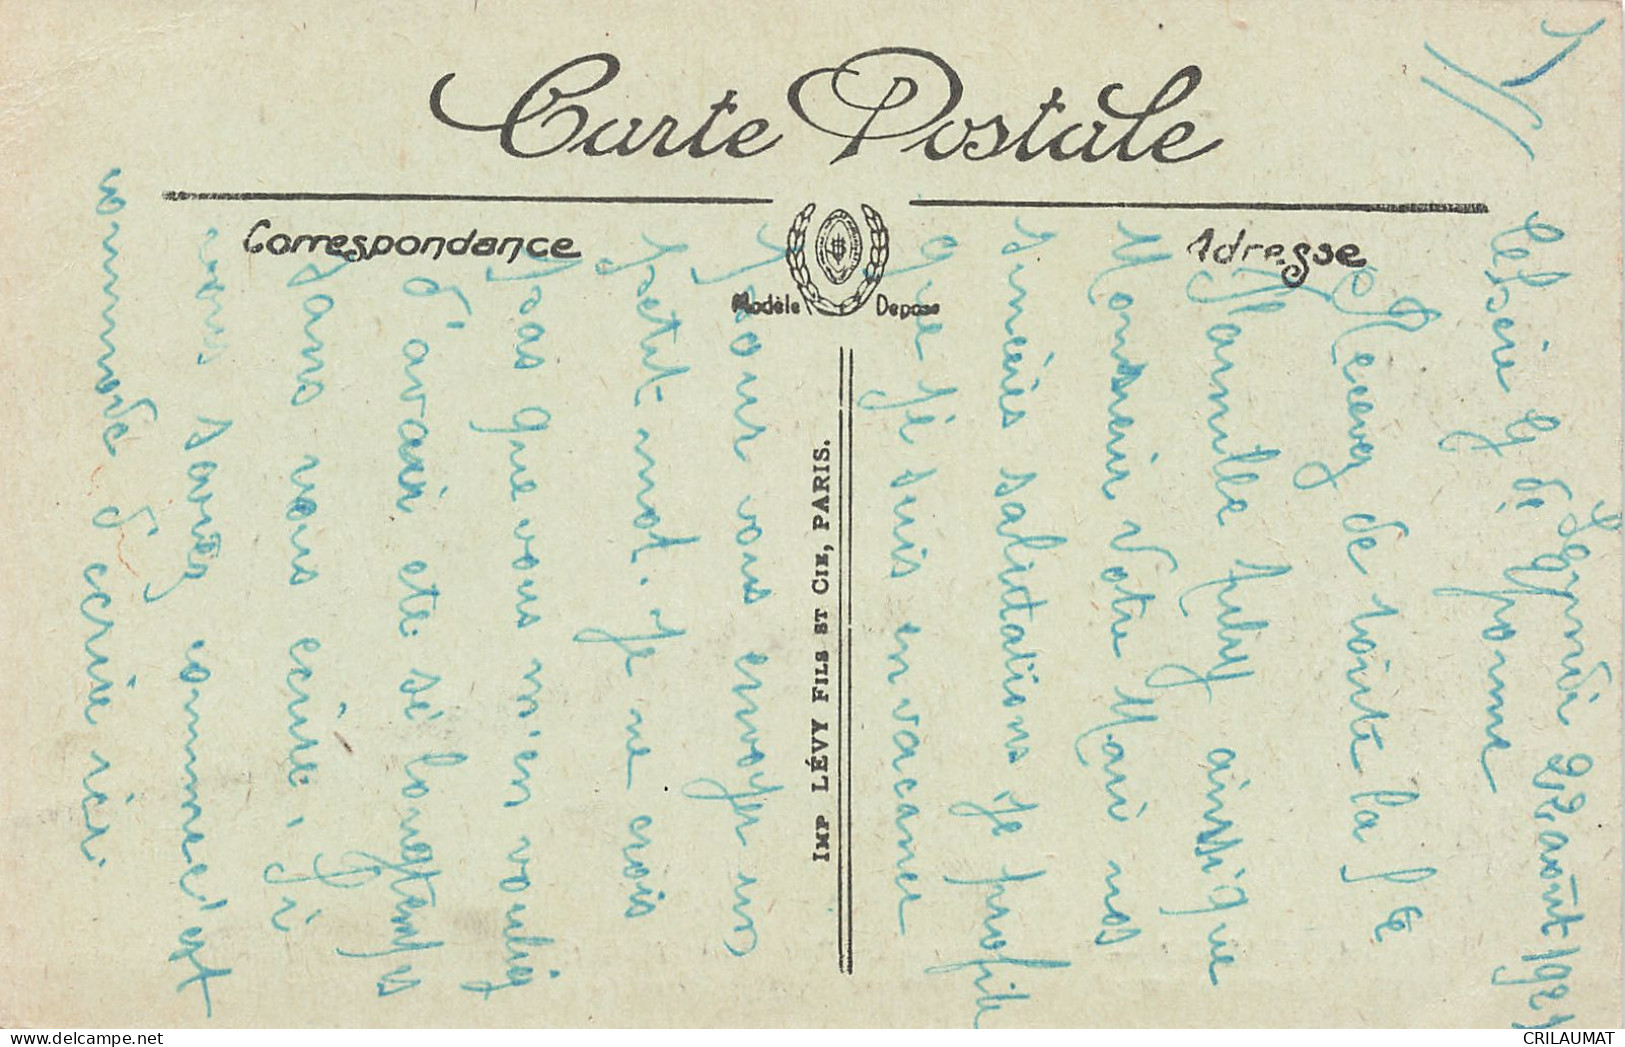 Carte Postale
Correspondance
Adresse
Modèle Deposé
IMP LÉVY FILS ET CIE, PARIS.
Vendredi 22 août 1921
Recevez de toute la
famille Puly ainsi que
Monsieur Votre Mari nos
sincères salutations je profite
que je suis en vacance
pour vous envoyer un
petit mot. Je ne crois
pas que vous m'en vouliez
d'avoir eté sé longtemps
sans vous ecrire,
vous savez comme c'est
commode d'ecrire ici
CRILAUMAT